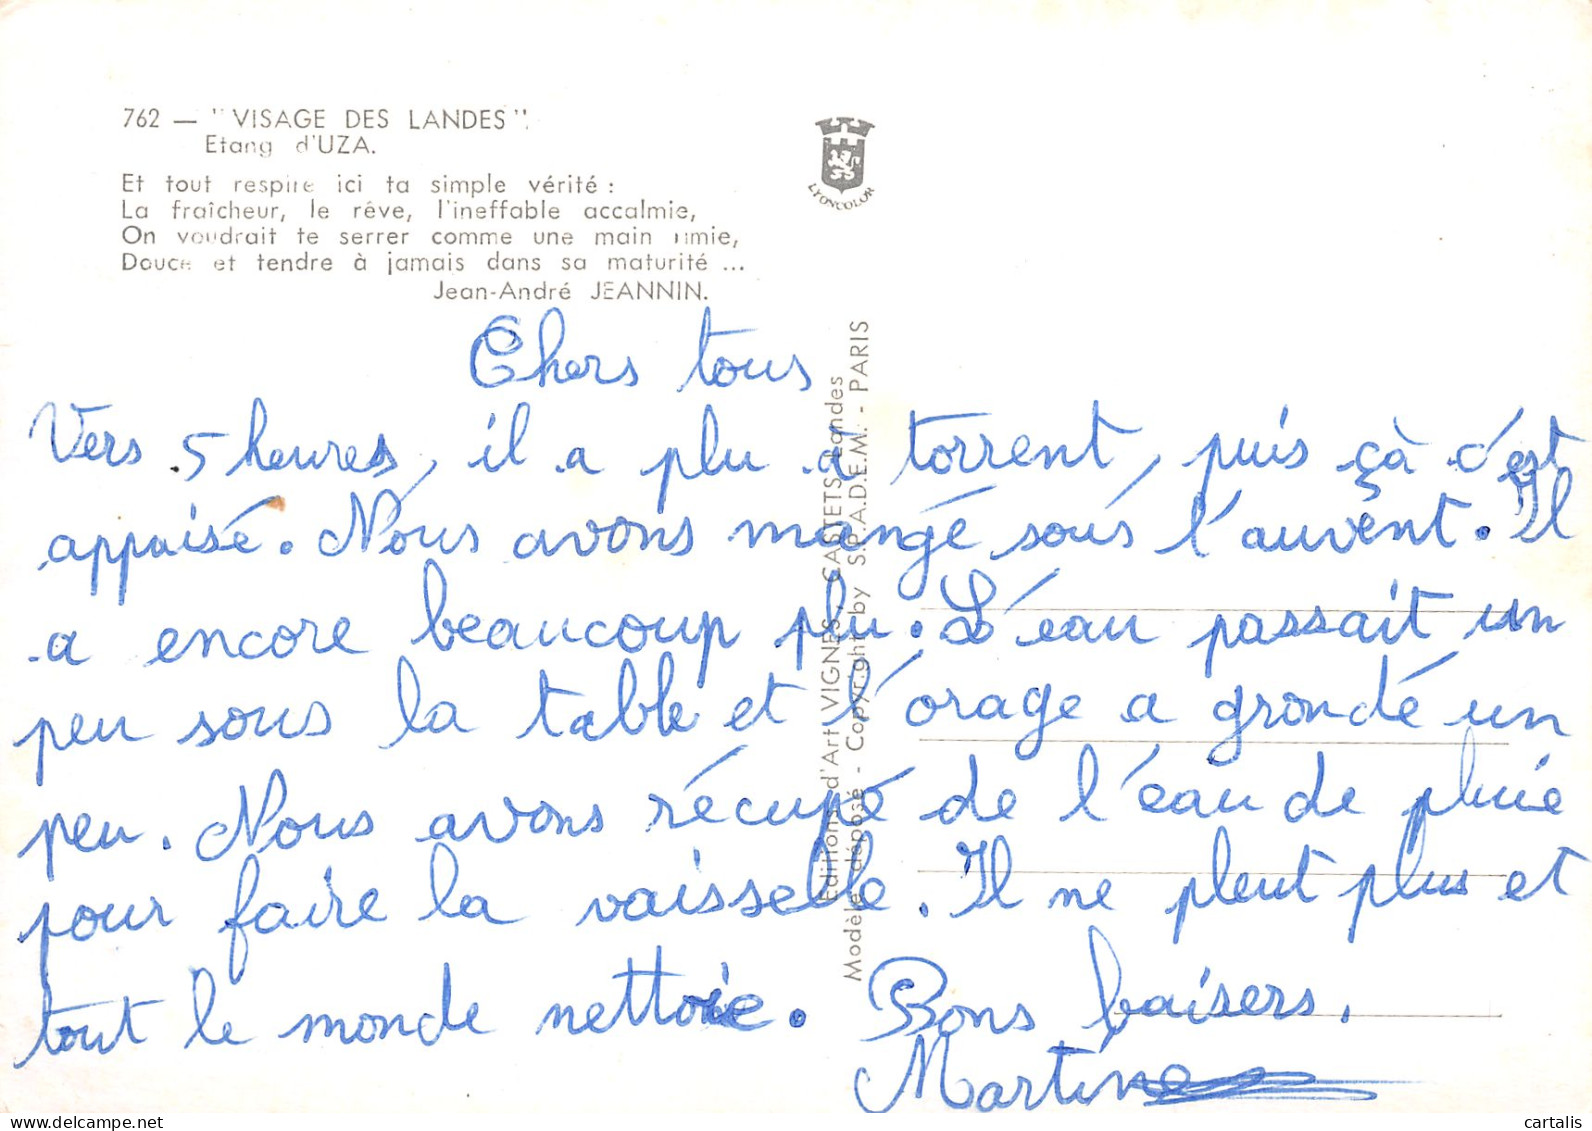 762 — "VISAGE DES LANDES".
Etang d'UZA.
Et tout respire ici ta simple vérité :
La fraîcheur, le rêve, l'ineffable accalmie,
On voudrait te serrer comme une main amie,
Douce et tendre à jamais dans sa maturité ...
Jean-André JEANNIN.
LYONCOLOR
Editions d'Art VIGNES, CASTETS Landes
Modèle déposé - Copyright by S.P.A.D.E.M. - PARIS
Chers tous
Vers 5 heures, il a plu à torrent, puis çà c'est
appaisé. Nous avons mangé sous l'auvent. Il
a encore beaucoup plu. L'eau passait un
peu sous la table et l'orage a grondé un
peu. Nous avons récupé de l'eau de pluie
pour faire la vaisselle. Il ne pleut plus et
tout le monde nettoie. Bons baisers.
Martine
cartalis